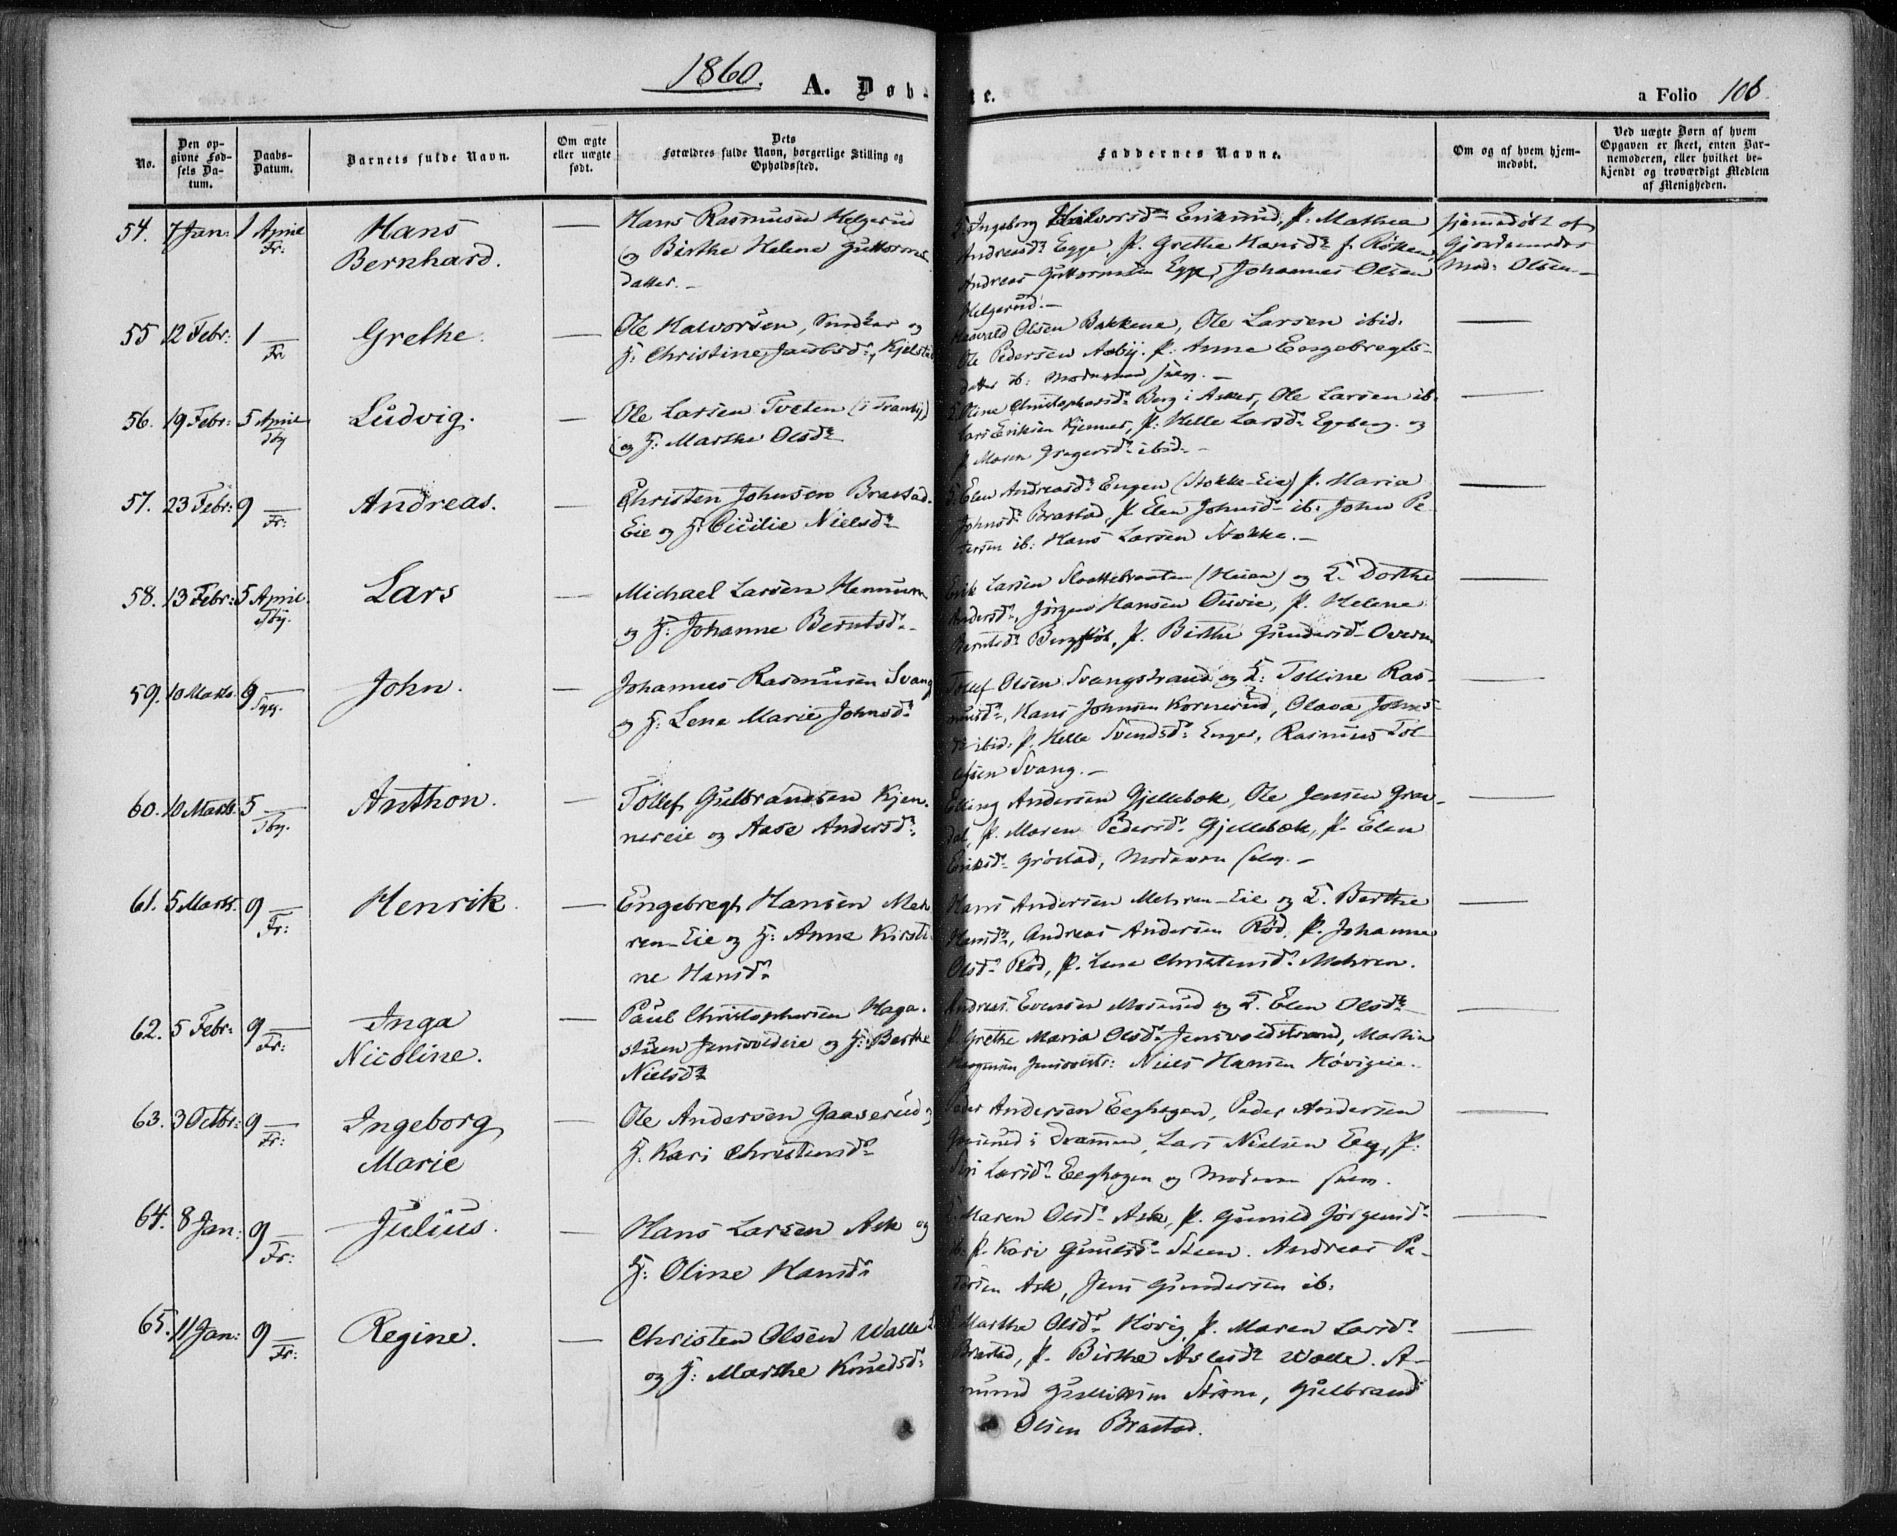 1860.
A. Døbte.
a Folio 106.
No.
Den op-
givne Fød-
sels Da-
tum.
Daabs-
Datum.
Barnets fulde Navn.
Om ægte
eller uægte
født.
Dets
Forældres fulde Navn, borgerlige Stilling og
Opholdssted.
Faddernes Navne.
Om og af hvem hjem-
medøbt.
Ved uægte Børn af hvem
Opgaven er skeet, enten Bar-
nemoderen, eller hvilket be-
kjendt og troværdigt Medlem
af Menigheden.
54. 7 Jan: 1 April Fr: Hans
Bernhard.
Hans Rasmusen Helgerud
og Birthe Helene Guttorms
datter.
Ingeborg Halvorsdr Eriksrud, P. Mathea
Andreasdr Egge, P. Grethe Hansdr f. Røken,
Andreas Guttormsen Egge, Johannes Olsen
Helgerud.
Hjemmedøbt af
Gjordemoder
Mad: Olsen.
55 12 Febr: 1 Fr Grethe.
Ole Halvorsen, og
H: Christine Jacobsdr, Kjelstad
Olsen Bakkene, Ole Larsen ibid.
Ole Pedersen Aaby. P. Anne Engebregts-
datter ib: Moderen selv.
56. 19 Febr: 5 April Tby Ludvig.
Ole Larsen Tveten (i Tranby)
og H: Marthe Olsdr
Oline Christophersdr Berg i Asker, Ole Larsen ib.
Lars Eriksen Kjenner, P. Helle Larsdr Egeberg og
P. Maren Gregersdr ibid.
57. 23 Febr: 9 Fr: Andreas.
Christen Johnsen Brastad-
Eie og H: Cicilie Nielsdr
Elen Andreasdr Engen (Stokke-Eie) P. Maria
Johnsdr Brastad, P. Elen Johnsdr ib: John Pe
tersen ib: Hans Larsen Stokke.
58. 13 Febr: 5 April. Tby. Lars
Michael Larsen Hennum
og H: Johanne Berntsdr
Erik Larsen Slottebraaten (Huen) og E. Dorthe
Andersdr, Jørgen Hansen P. Helene
Berntsdr P. Birthe Gundersdr
59. 10 Marts. 9 John.
Johannes Rasmusen Svang
og H: Lene Marie Johnsdr
Tollef Olsen Svangstrand og E: Tolline Ras-
musdr, Hans Johnsen Kornerud, Olava Johns-
dr ibid. P. Helle Svendsdr Enger, Rasmus Tol-
lefsen Svang.
60. 10 Marts. 5 Tby. Anthon.
Tollef Gulbrandsen Kjen-
nereie og Aase Andersdr
Elling Andersen Gjellebek, Ole Jensen Grav-
dal, P. Maren Pedersdr Gjellebek, P. Elen
Eriksdr Grøstad, Moderen selv.
61. 5 Marts. 9 Fr: Henrik.
Engebregt Hansen Meh
ren-Eie og H: Anne Kirsti
ne Hansdr
Hans Andersen Mehren-Eie og E. Berthe
Hansdr, Andreas Andersen Rød, P. Johanne
Olsdr Rød, P. Lene Christensdr Mehren.
62. 5 Febr: 9 Fr: Inga
Nicoline.
Paul Christophersen Haga-
stuen Jensvoldeie og H: Berthe
Nielsdr
Andreas Evensen Morerud og E. Elen Olsdr
P. Grethe Maria Olsdr Jensvoldstrand, Martin
Niels Hansen Høvigeie.
63. 3 Octbr: 9 Fr: Ingeborg
Marie
Ole Andersen Gaaserud og
H: Kari Christensdr
Peder Andersen Eeghagen, Peder Andersen
i Drammen, Lars Nielsen Eeg, P.
Siri Larsdr Eeghagen og Moderen selv.
64. 8 Jan: 9 Fr: Julius.
Hans Larsen Ask og
H: Oline Hansdr
Maren Olsdr Ask, P. Gunild Jørgensdr
ib. P. Kari Steen. Andreas Pe-
tersen Ask, Jens Gundersen ib:
65. 11 Jan: 9 Fr: Regine.
Christen Olsen Walle
og H: Marthe Knudsdr
Marthe Olsdr Høvig, P. Maren Larsdr
Brastad, P. Birthe Aslesdr Walle. A-
mund Gulliksen Strøm, Gulbrand
Olsen Brastad.